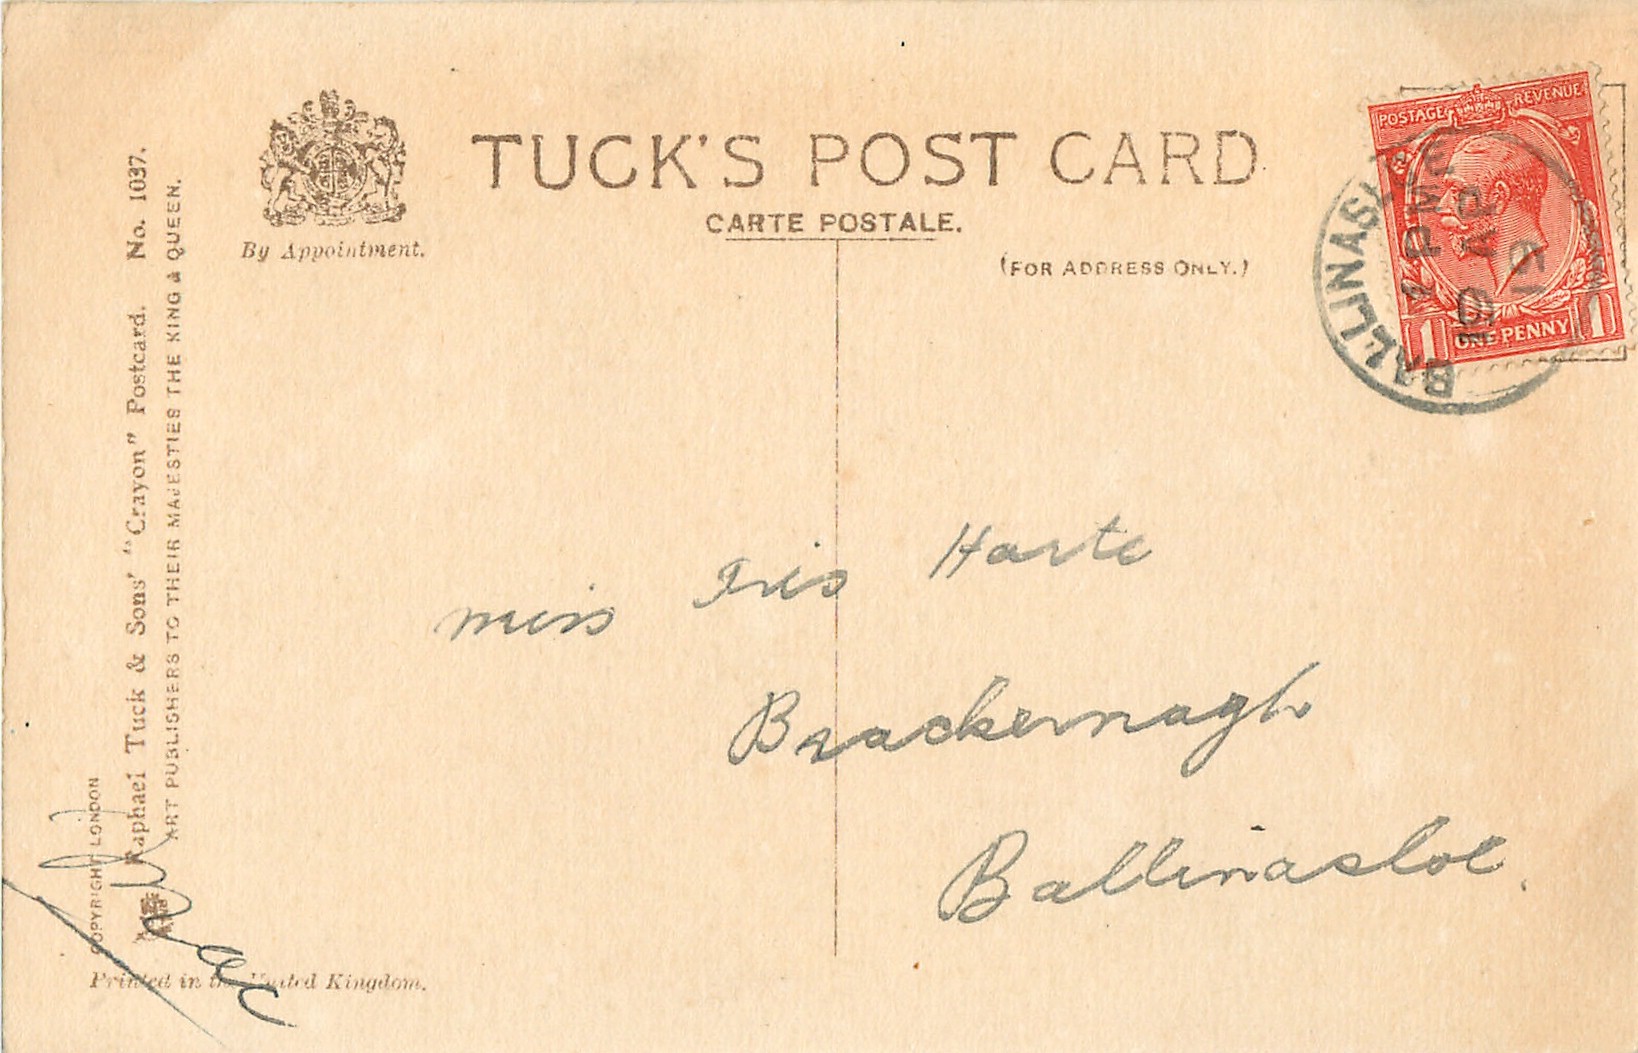 TUCK'S POST CARD
CARTE POSTALE.
(FOR ADDRESS ONLY.)
By Appointment.
POSTAGE REVENUE
1 ONE PENNY 1
BALLINAS
1 PM
19 AP
19
Raphael Tuck & Sons' "Crayon" Postcard. No. 1037.
ART PUBLISHERS TO THEIR MAJESTIES THE KING & QUEEN.
COPYRIGHT LONDON
Printed in the United Kingdom.
miss Iris Harte
Brackernagh
Ballinasloe.